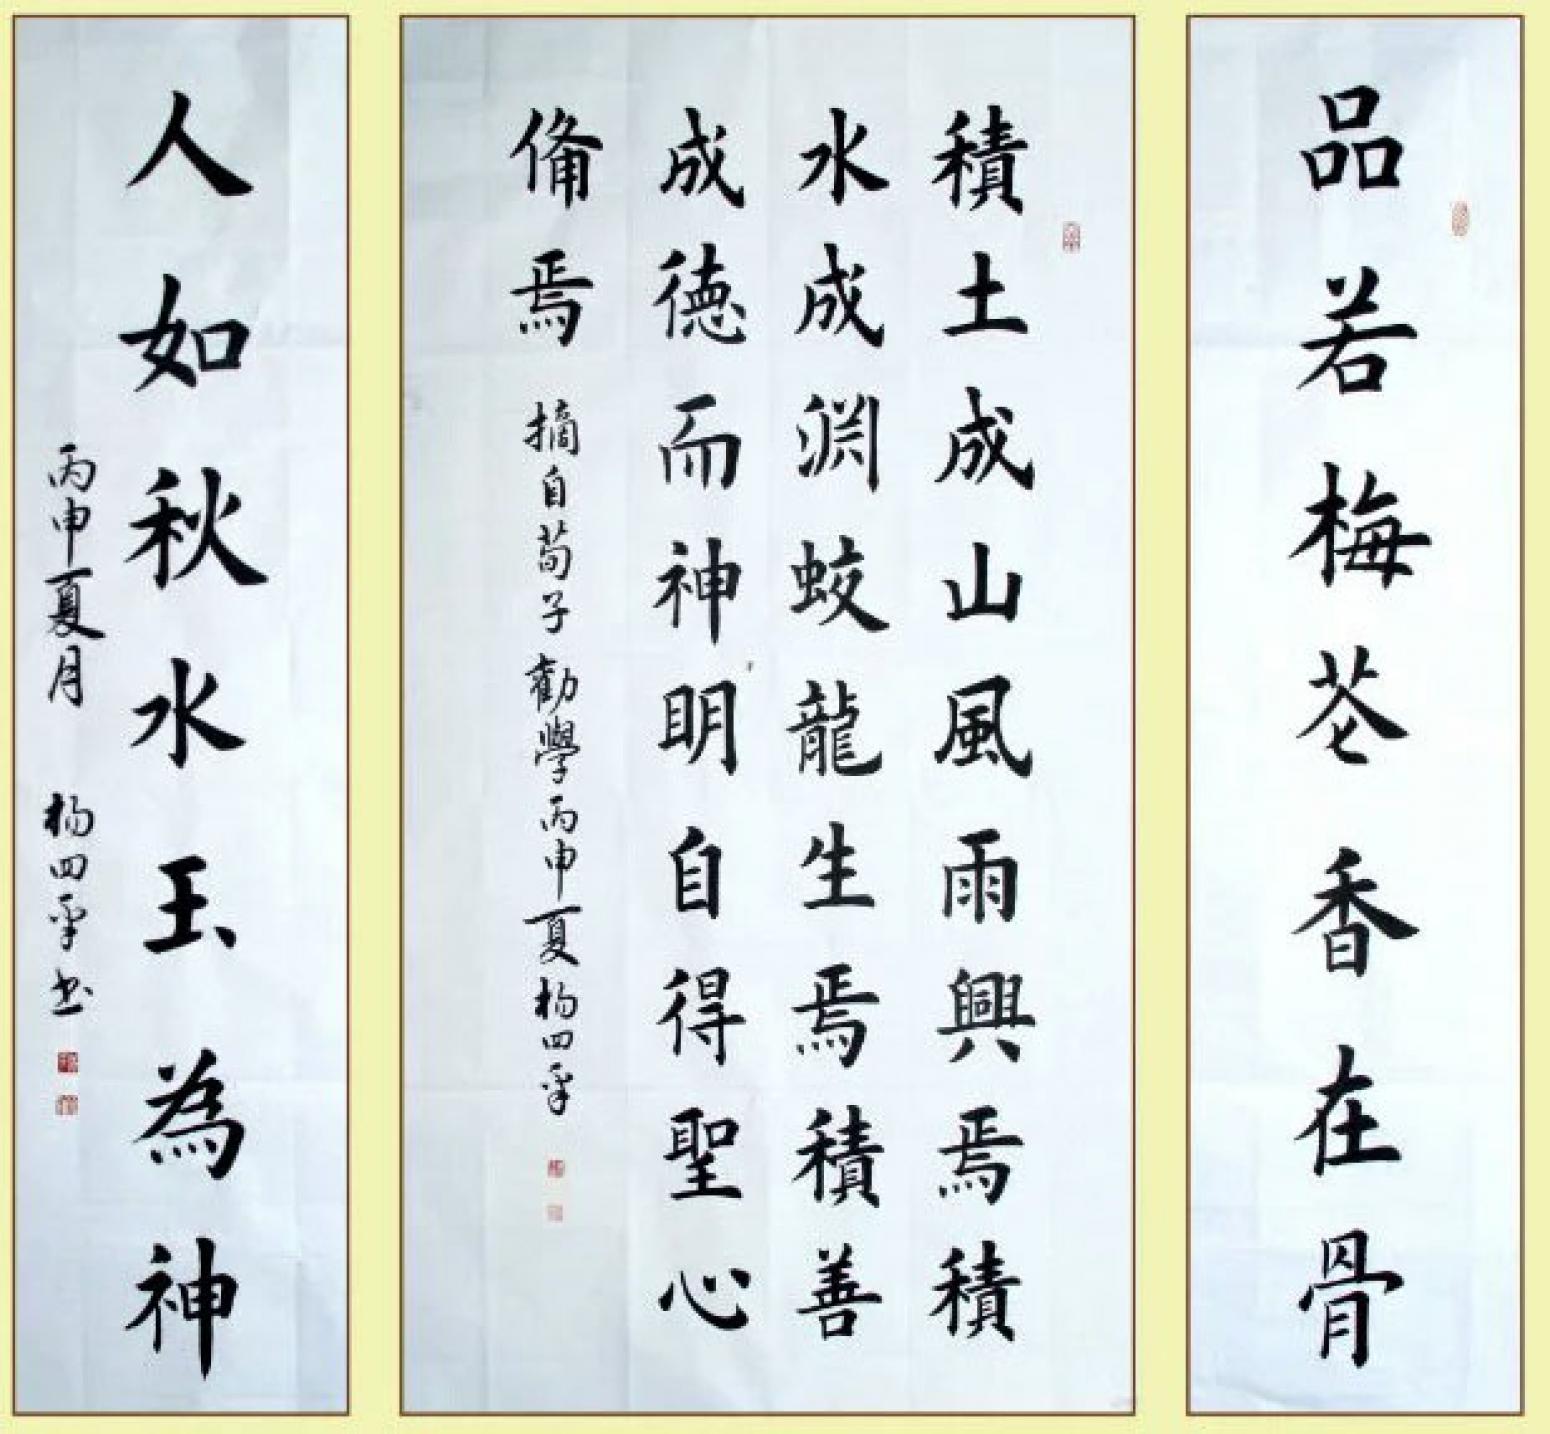 品若梅花香在骨
積土成山風雨興焉積
水成淵蛟龍生焉積善
成德而神明自得聖心
俻焉
摘自荀子勸學丙申夏楊四平
人如秋水玉為神
丙申夏月 楊四平书